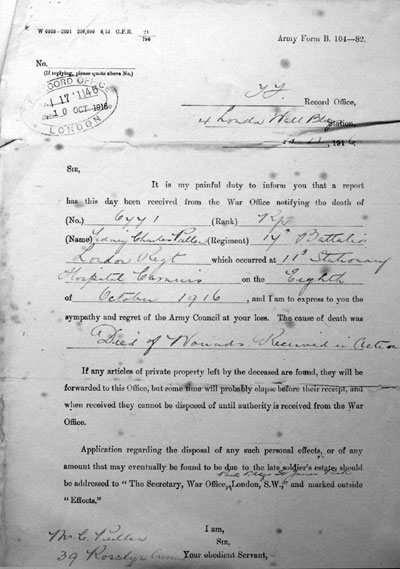 W 6938—2691 250,000 8/15 C.F.R.
Army Form B. 104—82.
No.
(If replying, please quote above No.)
RECORD OFFICE
10 OCT 1916
LONDON
T.F. Record Office,
4 London Wall Bldgs Station,
1916
SIR,
It is my painful duty to inform you that a report
has this day been received from the War Office notifying the death of
(No.) 6441 (Rank)
(Name) Sidney Charles Pullen (Regiment) 14th Battalion
London Regt which occurred at 11th Stationary
Hospital on the Eighth
of October 1916, and I am to express to you the
sympathy and regret of the Army Council at your loss. The cause of death was
Died of Wounds Received in Action
If any articles of private property left by the deceased are found, they will be
forwarded to this Office, but some time will probably elapse before their receipt, and
when received they cannot be disposed of until authority is received from the War
Office.
Application regarding the disposal of any such personal effects, or of any
amount that may eventually be found to be due to the late soldier's estate, should
be addressed to “The Secretary, War Office, London, S.W.,” and marked outside
“Effects.”
I am,
SIR,
Your obedient Servant,
Mr C. Pullen
39